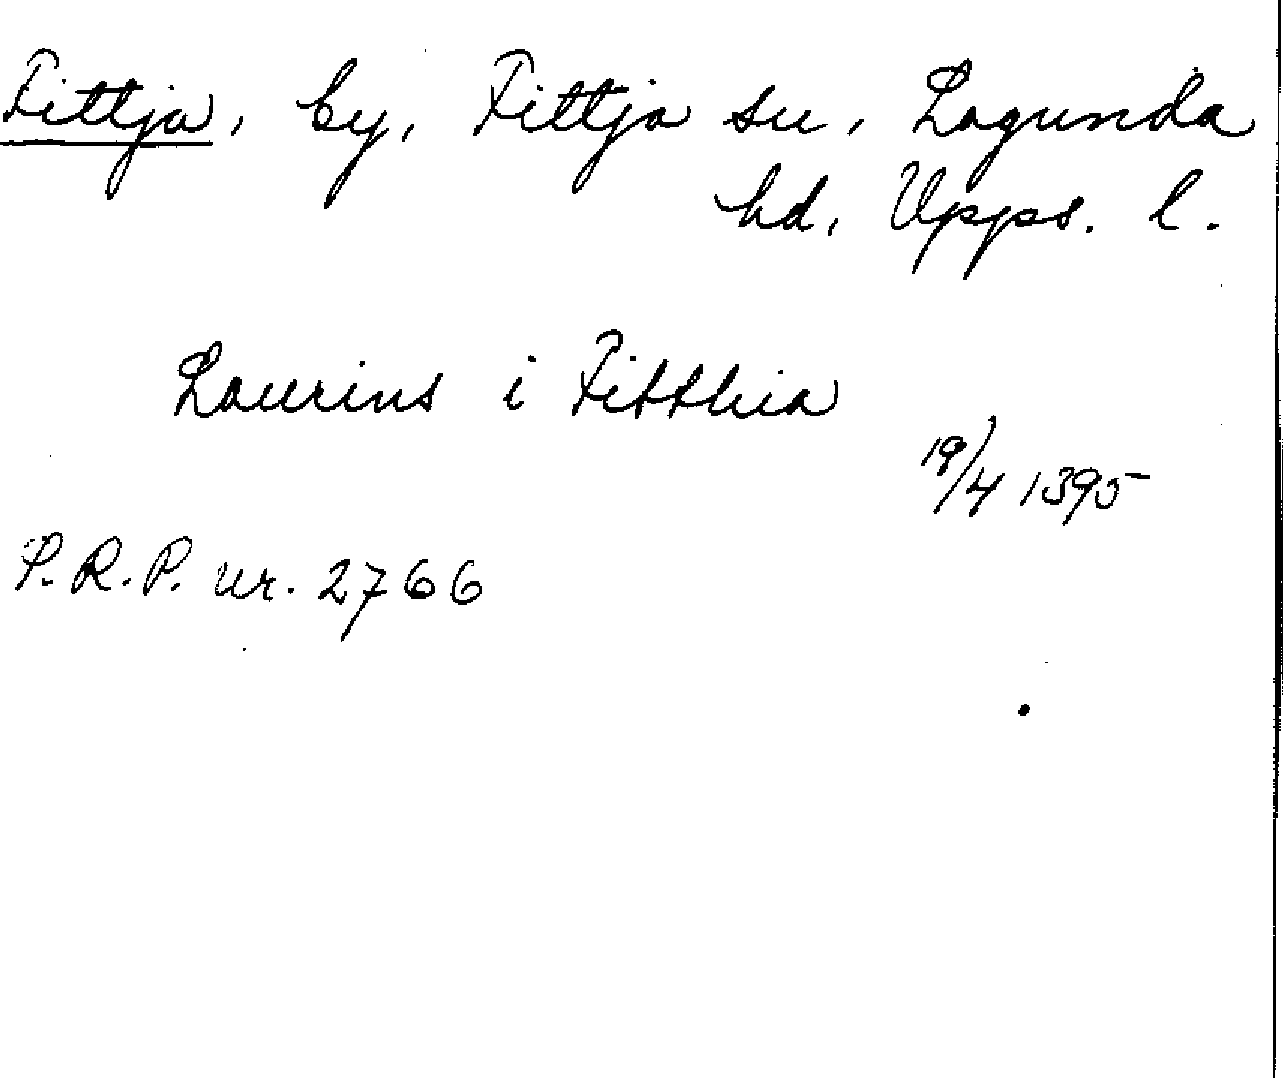 Fittja, by, Fittja sn, Lagunda
hd, Upps. l.
Laurins i Fitthia
19/4 1395
S.R.P. nr. 2766